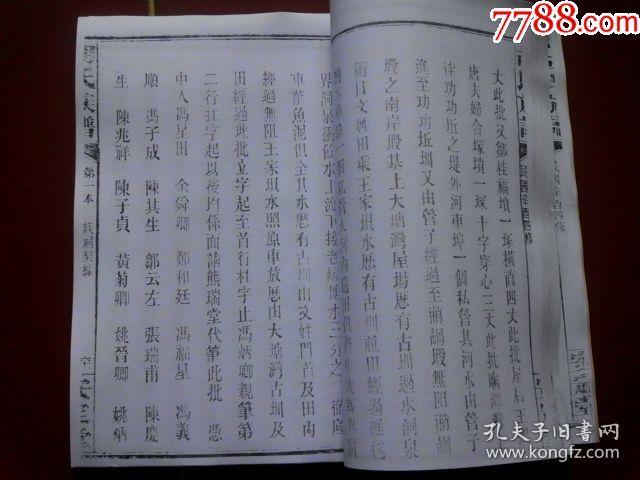 7788.com
民國辛酉四修
民國辛酉四修
丈此批又鄒桂福墳一塚橫直四丈此批屋后王
唐夫婦合塚墳一塚十字穿心三丈此批廟
洋功功坵之堤外河車埠一個私管其河水由管子
進至功功坵圳又由管子經過至消湖毀無阻消湖
毀之南岸毀基上大塘灣屋場歷有古圳過水洞泉
衝口文姓田乘王家垻水歷有古圳並田經過雅巷
車莊魚泥俱全其水歷有古圳由文姓門首及田內
經過無阻王家垻水照原車放歷由大塘灣古圳及
田經過此批立字起至首行杜字止馮炳鄉親筆第
二行江字起以後均係面請熊瑞堂代筆此批 憑
中人 馮星田 余舜卿 鄭和廷 馮福星 馮義
順 馮子成 陳其生 鄒云左 張瑞甫 陳慶
生 陳兆祥 陳子貞 黃菊卿 姚晉卿 姚炳
氏族譜
第一本 族嗣契據
孔夫子旧书网
www.kongfz.com